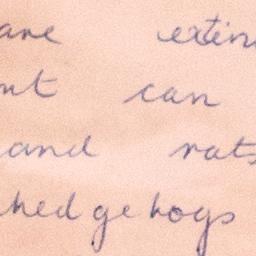 are extin
can
and rats
hedgehogs